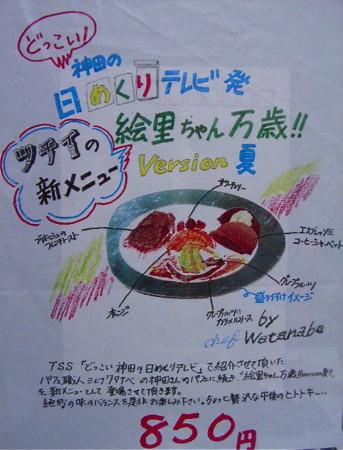 どっこい!
神田の
日めくりテレビ発
絵里ちゃん万歳!!
ツチヤの
新メニュー
Version 夏
サワーチェリー
ブリオッシュの
フレンチトースト
エスプレッソと
コーヒーシャーベット
オレンジ
グレープフルーツの
カラメルソース
グレープフルーツ
盛り付けイメージ
by
chef Watanabe
TSS「どっこい神田の日めくりテレビ」で紹介させて頂いた
パフェ職人シェフワタナベの神田さんのパフェに続き"絵里ちゃん万歳!!version夏!!"
を新メニューとして登場させて頂きます。
絶妙の味のバランスを是非お楽しみ下さい。ちょっと贅沢な午後のヒトトキ…
850円